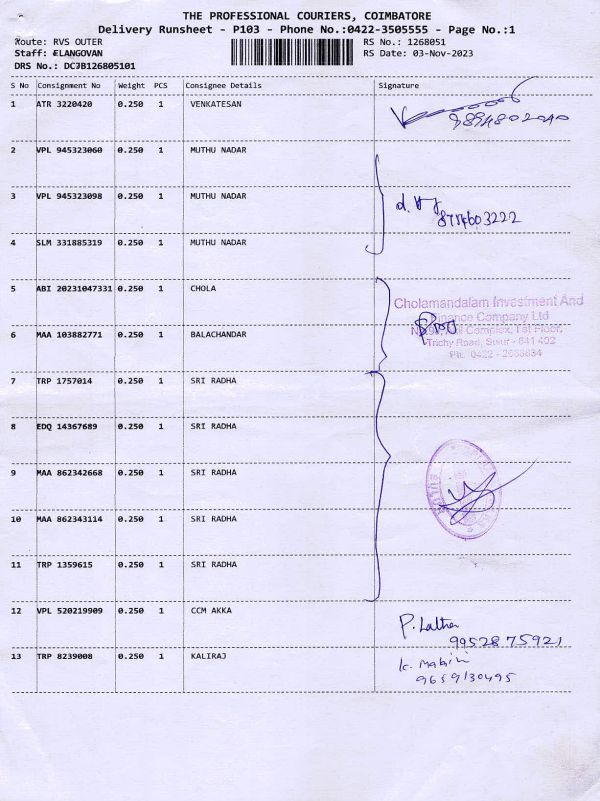 THE PROFESSIONAL COURIERS, COIMBATORE
Delivery Runsheet - P103 - Phone No.:0422-3505555 - Page No.:1
Route: RVS OUTER
RS No.: 1268051
Staff: ELANGOVAN
RS Date: 03-Nov-2023
DRS No.: DCJB126805101
S No Consignment No Weight PCS Consignee Details Signature
1 ATR 3220420 0.250 1 VENKATESAN
2 VPL 945323060 0.250 1 MUTHU NADAR
3 VPL 945323098 0.250 1 MUTHU NADAR
8754603222
4 SLM 331885319 0.250 1 MUTHU NADAR
5 ABI 20231047331 0.250 1 CHOLA
Cholamandalam Investment And
Finance Company Ltd
Complex, 1st Floor,
6 MAA 103882771 0.250 1 BALACHANDAR
Trichy Road, Sulur - 641 402
Ph: 0422 -
7 TRP 1757014 0.250 1 SRI RADHA
8 EDQ 14367689 0.250 1 SRI RADHA
9 MAA 862342668 0.250 1 SRI RADHA
10 MAA 862343114 0.250 1 SRI RADHA
11 TRP 1359615 0.250 1 SRI RADHA
12 VPL 520219909 0.250 1 CCM AKKA
P. Latha
9952875921
13 TRP 8239008 0.250 1 KALIRAJ
9659130495